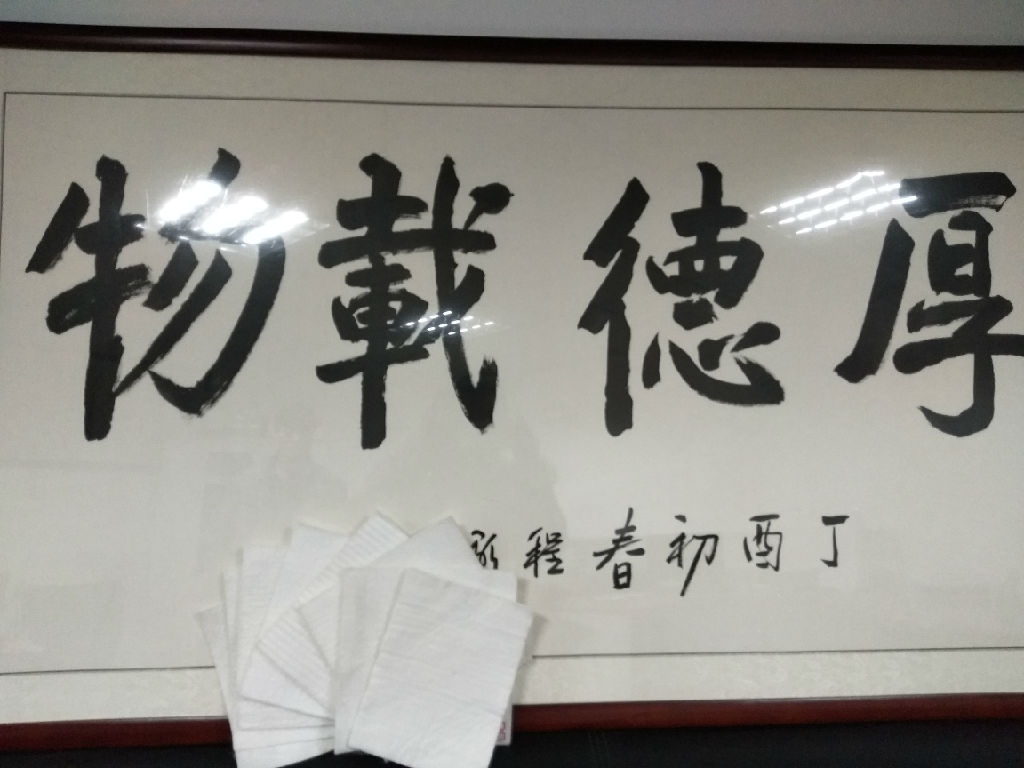 厚德載物
丁酉初春程